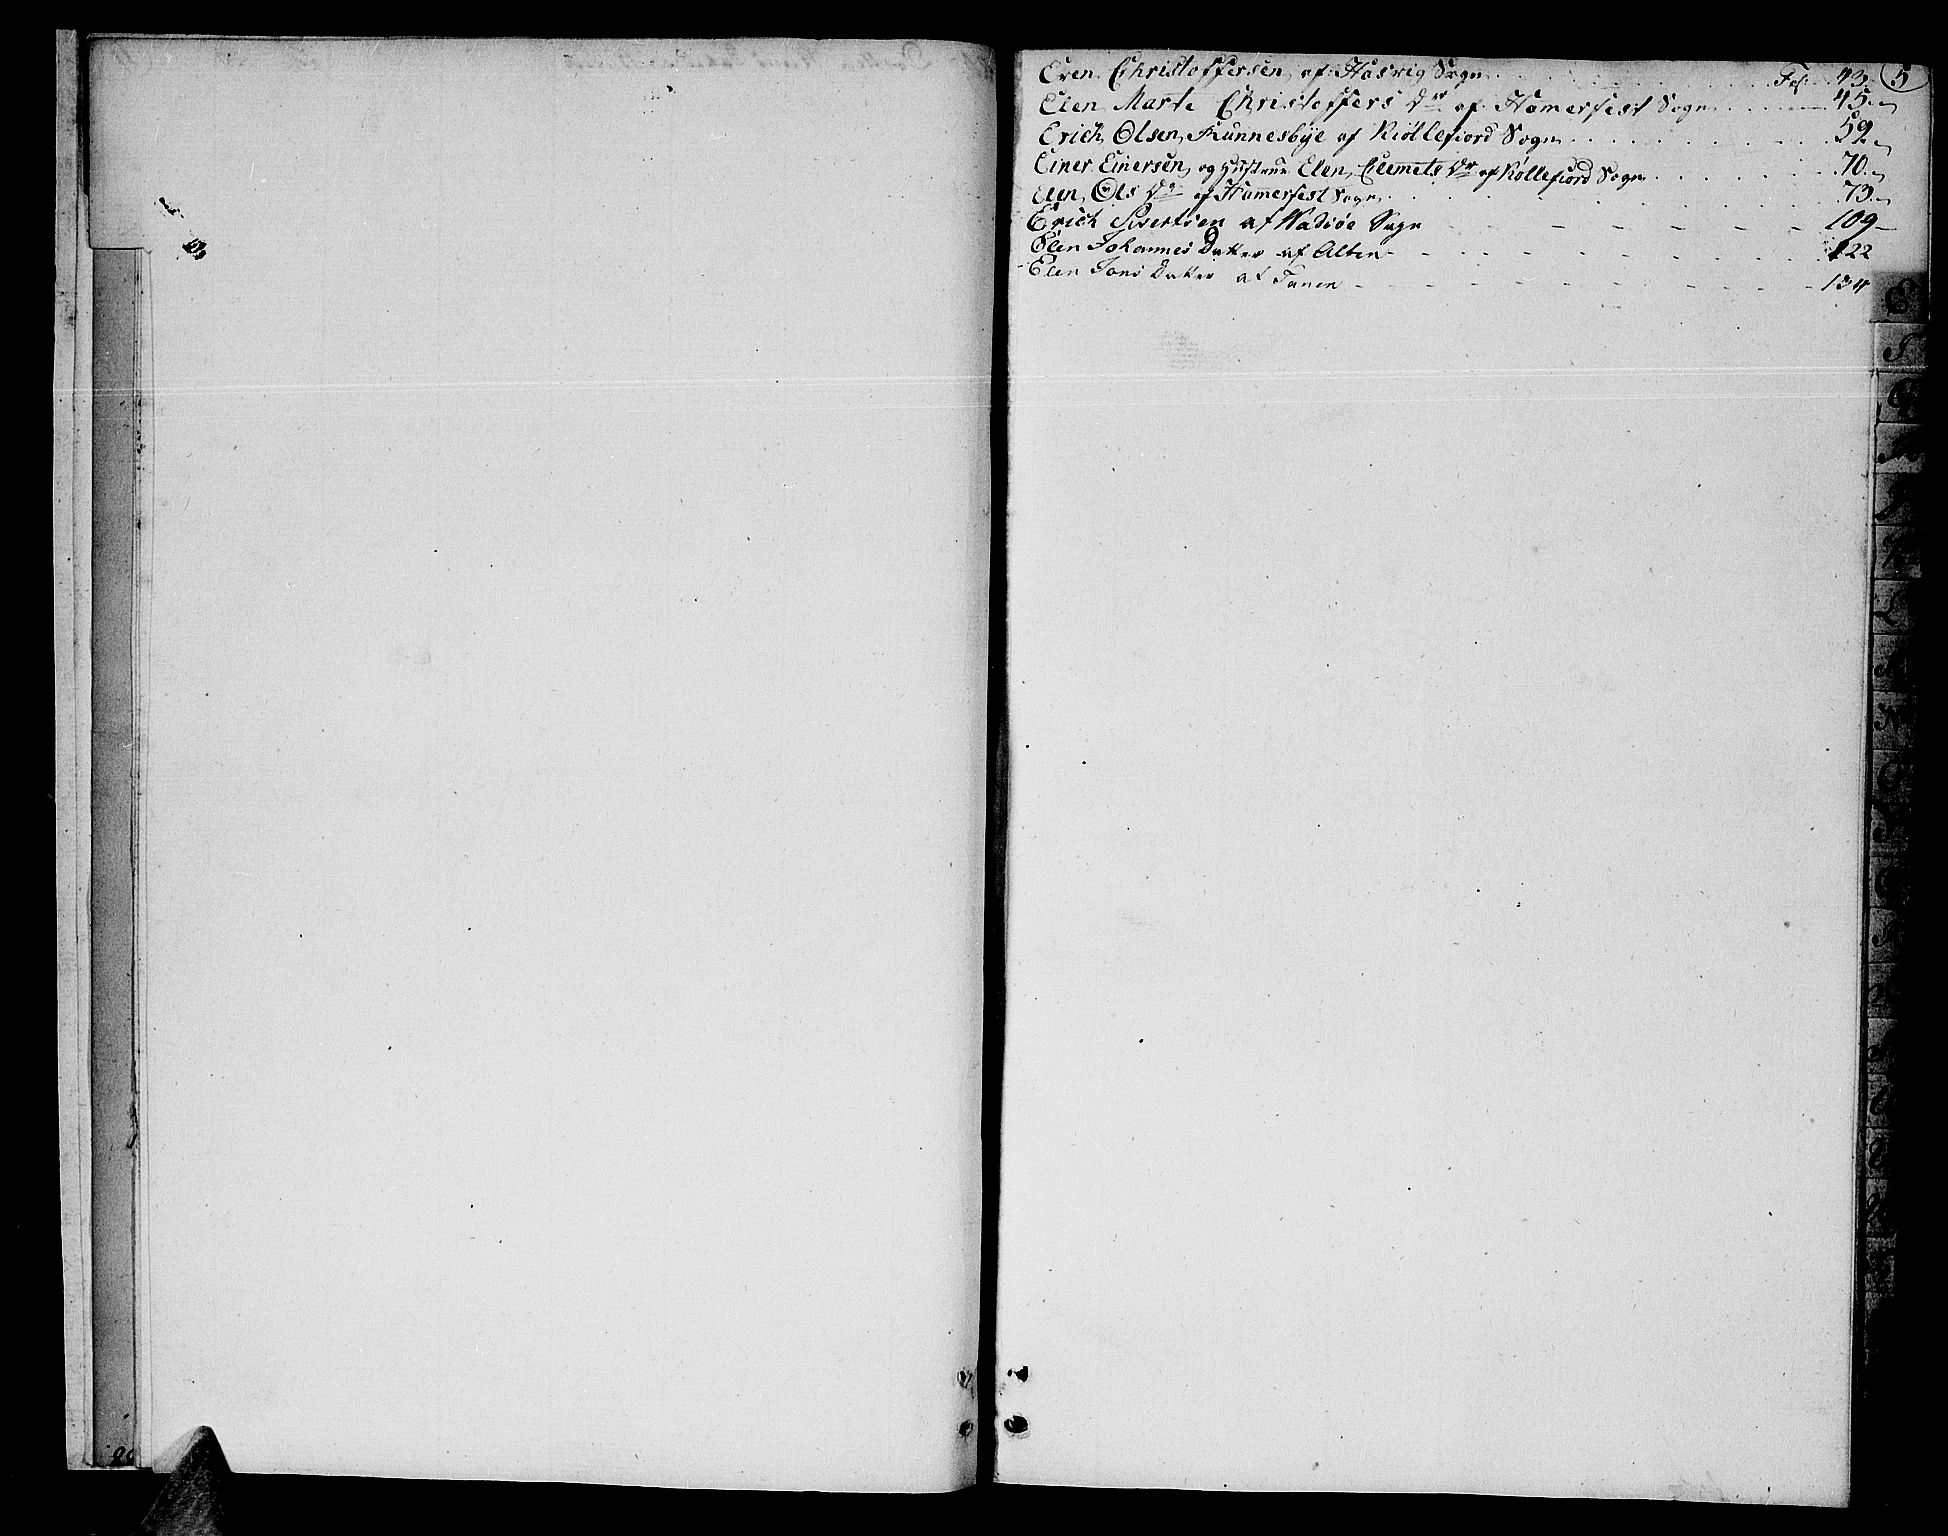 5
Even Christoffersen af Hasvig Sogn . . . . Fol: 43.
Elen Marte Christoffers Dr af Hamerfest Sogn . . . . 45.
Erich Olsen Kunnesbye af Kiöllefiord Sogn . . . . 59.
Einer Einersen og Hustrue Elen Clemets Dr af Köllefiord Sogn . . . . 70.
Ols Dr af Hamerfest Sogn . . . . 73.
Erich Sivertsen af Wadsöe Sogn - - - - 109
Elen Johannes Datter af Alten - - - - 122
Elen Jons Datter af Tanen - - - - 134
E